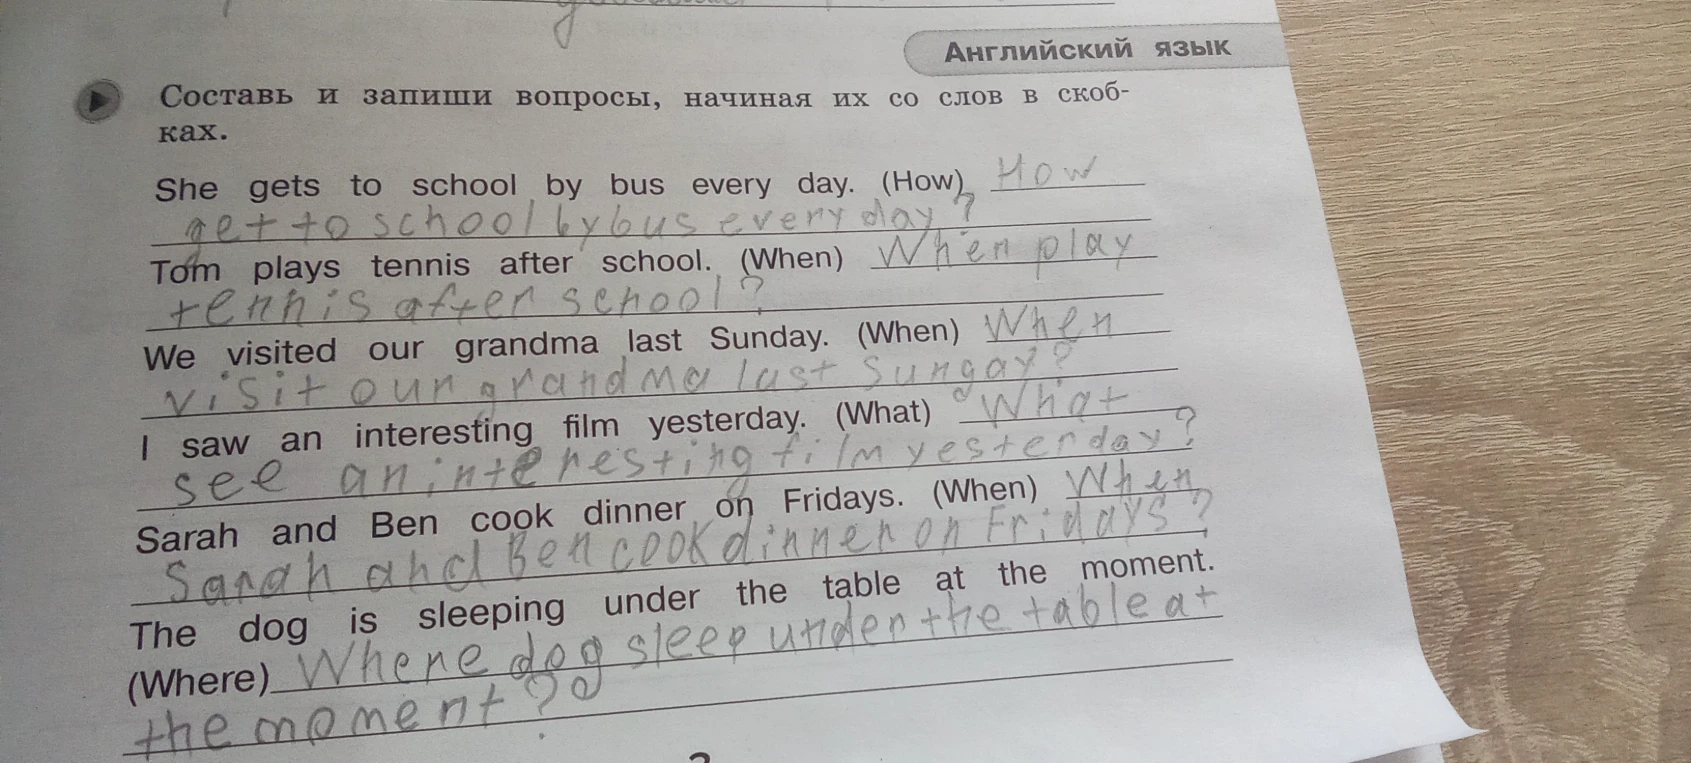 Английский язык
Составь и запиши вопросы, начиная их со слов в скоб-
ках.
She gets to school by bus every day. (How) How
get to school by bus every day?
Tom plays tennis after school. (When) When play
tennis after school?
We visited our grandma last Sunday. (When) When
visit our grandma last Sungay?
I saw an interesting film yesterday. (What) What
see an interesting film yesterday?
Sarah and Ben cook dinner on Fridays. (When) When
Sarah and Ben cook dinner on Fridays?
The dog is sleeping under the table at the moment.
(Where) Where dog sleep under the table at
the moment?